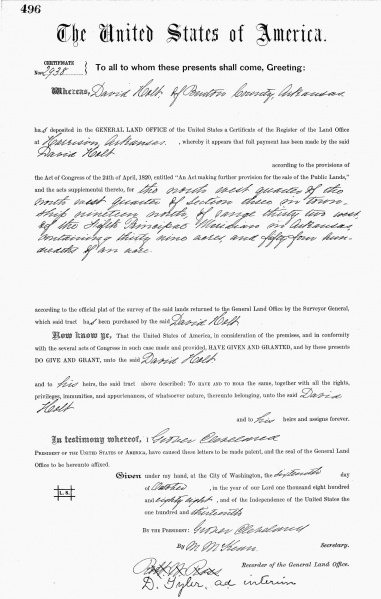 496
The United States of America.
CERTIFICATE
No. 2938
To all to whom these presents shall come, Greeting:
Whereas, David Holt of Benton County, Arkansas
has deposited in the GENERAL LAND OFFICE of the United States a Certificate of the Register of the Land Office
at Harrison, Arkansas, whereby it appears that full payment has been made by the said
David Holt
according to the provisions of
the Act of Congress of the 24th of April, 1820, entitled "An Act making further provision for the sale of the Public Lands,"
and the acts supplemental thereto, for the north west quarter of the
north west quarter of section three in town-
ship nineteen north, of range thirty two west
of the Fifth Principal Meridian in Arkansas
containing thirty nine acres, and fifty four hun-
dredths of an acre
according to the official plat of the survey of the said lands returned to the General Land Office by the Surveyor General,
which said tract has been purchased by the said David Holt
Now know ye, That the United States of America, in consideration of the premises, and in conformity
with the several acts of Congress in such case made and provided, HAVE GIVEN AND GRANTED, and by these presents
DO GIVE AND GRANT, unto the said David Holt
and to his heirs, the said tract above described: To HAVE AND TO HOLD the same, together with all the rights,
privileges, immunities, and appurtenances, of whatsoever nature, thereunto belonging, unto the said David
Holt
and to his heirs and assigns forever.
In testimony whereof, I Grover Cleveland
PRESIDENT OF THE UNITED STATES OF AMERICA, have caused these letters to be made patent, and the seal of the General Land
Office to be hereunto affixed.
Given under my hand, at the City of Washington, the sixteenth day
of October, in the year of our Lord one thousand eight hundred
and eighty eight, and of the Independence of the United States the
one hundred and thirteenth
L. S.
BY THE PRESIDENT: Grover Cleveland
By M. McKean Secretary.
Robt W Ross Recorder of the General Land Office.
D. Tyler, ad interim